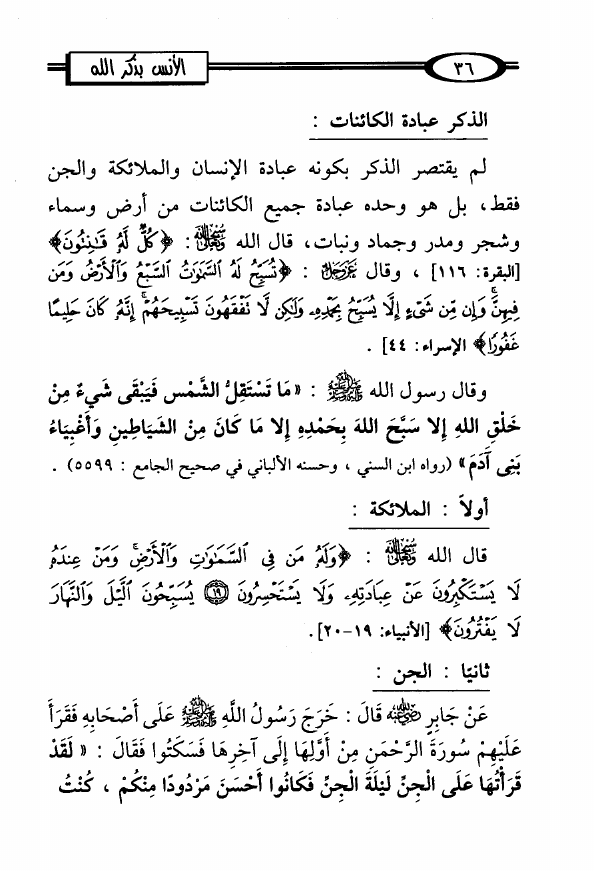 ٣٦
الأنس بذكر الله
الذكر عبادة الكائنات :
لم يقتصر الذكر بكونه عبادة الإنسان والملائكة والجن
فقط، بل هو وحده عبادة جميع الكائنات من أرض وسماء
وشجر ومدر وجماد ونبات، قال الله سبحانه وتعالى : ﴿كُلٌّ لَّهُ قَانِتُونَ﴾
[البقرة: ١١٦] ، وقال عز وجل : ﴿تُسَبِّحُ لَهُ السَّمَوَاتُ السَّبْعُ وَالْأَرْضُ وَمَن
فِيهِنَّ وَإِن مِّن شَيْءٍ إِلَّا يُسَبِّحُ بِحَمْدِهِ وَلَكِن لَّا تَفْقَهُونَ تَسْبِيحَهُمْ إِنَّهُ كَانَ حَلِيمًا
غَفُورًا﴾ الإسراء: ٤٤] .
وقال رسول الله ﷺ : « مَا تَسْتَقِلُّ الشَّمْسِ فَيَبْقَى شَيءٌ مِنْ
خَلْقِ اللهِ إِلا سَبَّحَ اللهَ بِحَمْدِهِ إِلا مَا كَانَ مِنْ الشَيَاطِينِ وَأَغْبِيَاءُ
بَنِى آدَمَ » (رواه ابن السني ، وحسنه الألباني في صحيح الجامع : ٥٥٩٩) .
أولاً : الملائكة :
قال الله سبحانه وتعالى : ﴿وَلَهُ مَن فِي السَّمَوَاتِ وَالْأَرْضِ وَمَنْ عِندَهُ
لَا يَسْتَكْبِرُونَ عَنْ عِبَادَتِهِ وَلَا يَسْتَحْسِرُونَ ۝١٩ يُسَبِّحُونَ الَّيْلَ وَالنَّهَارَ
لَا يَفْتُرُونَ﴾ [الأنبياء: ١٩-٢٠].
ثانيًا : الجن :
عَنْ جَابِرٍ رضي الله عنه قَالَ : خَرَجَ رَسُولُ اللَّهِ ﷺ عَلَى أَصْحَابِهِ فَقَرَأَ
عَلَيْهِمْ سُورَةَ الرَّحْمَنِ مِنْ أَوَّلِهَا إِلَى آخِرِهَا فَسَكَتُوا فَقَالَ : « لَقَدْ
قَرَأْتُهَا عَلَى الْجِنِّ لَيْلَةَ الْجِنِّ فَكَانُوا أَحْسَنَ مَرْدُودًا مِنْكُمْ ، كُنْتُ